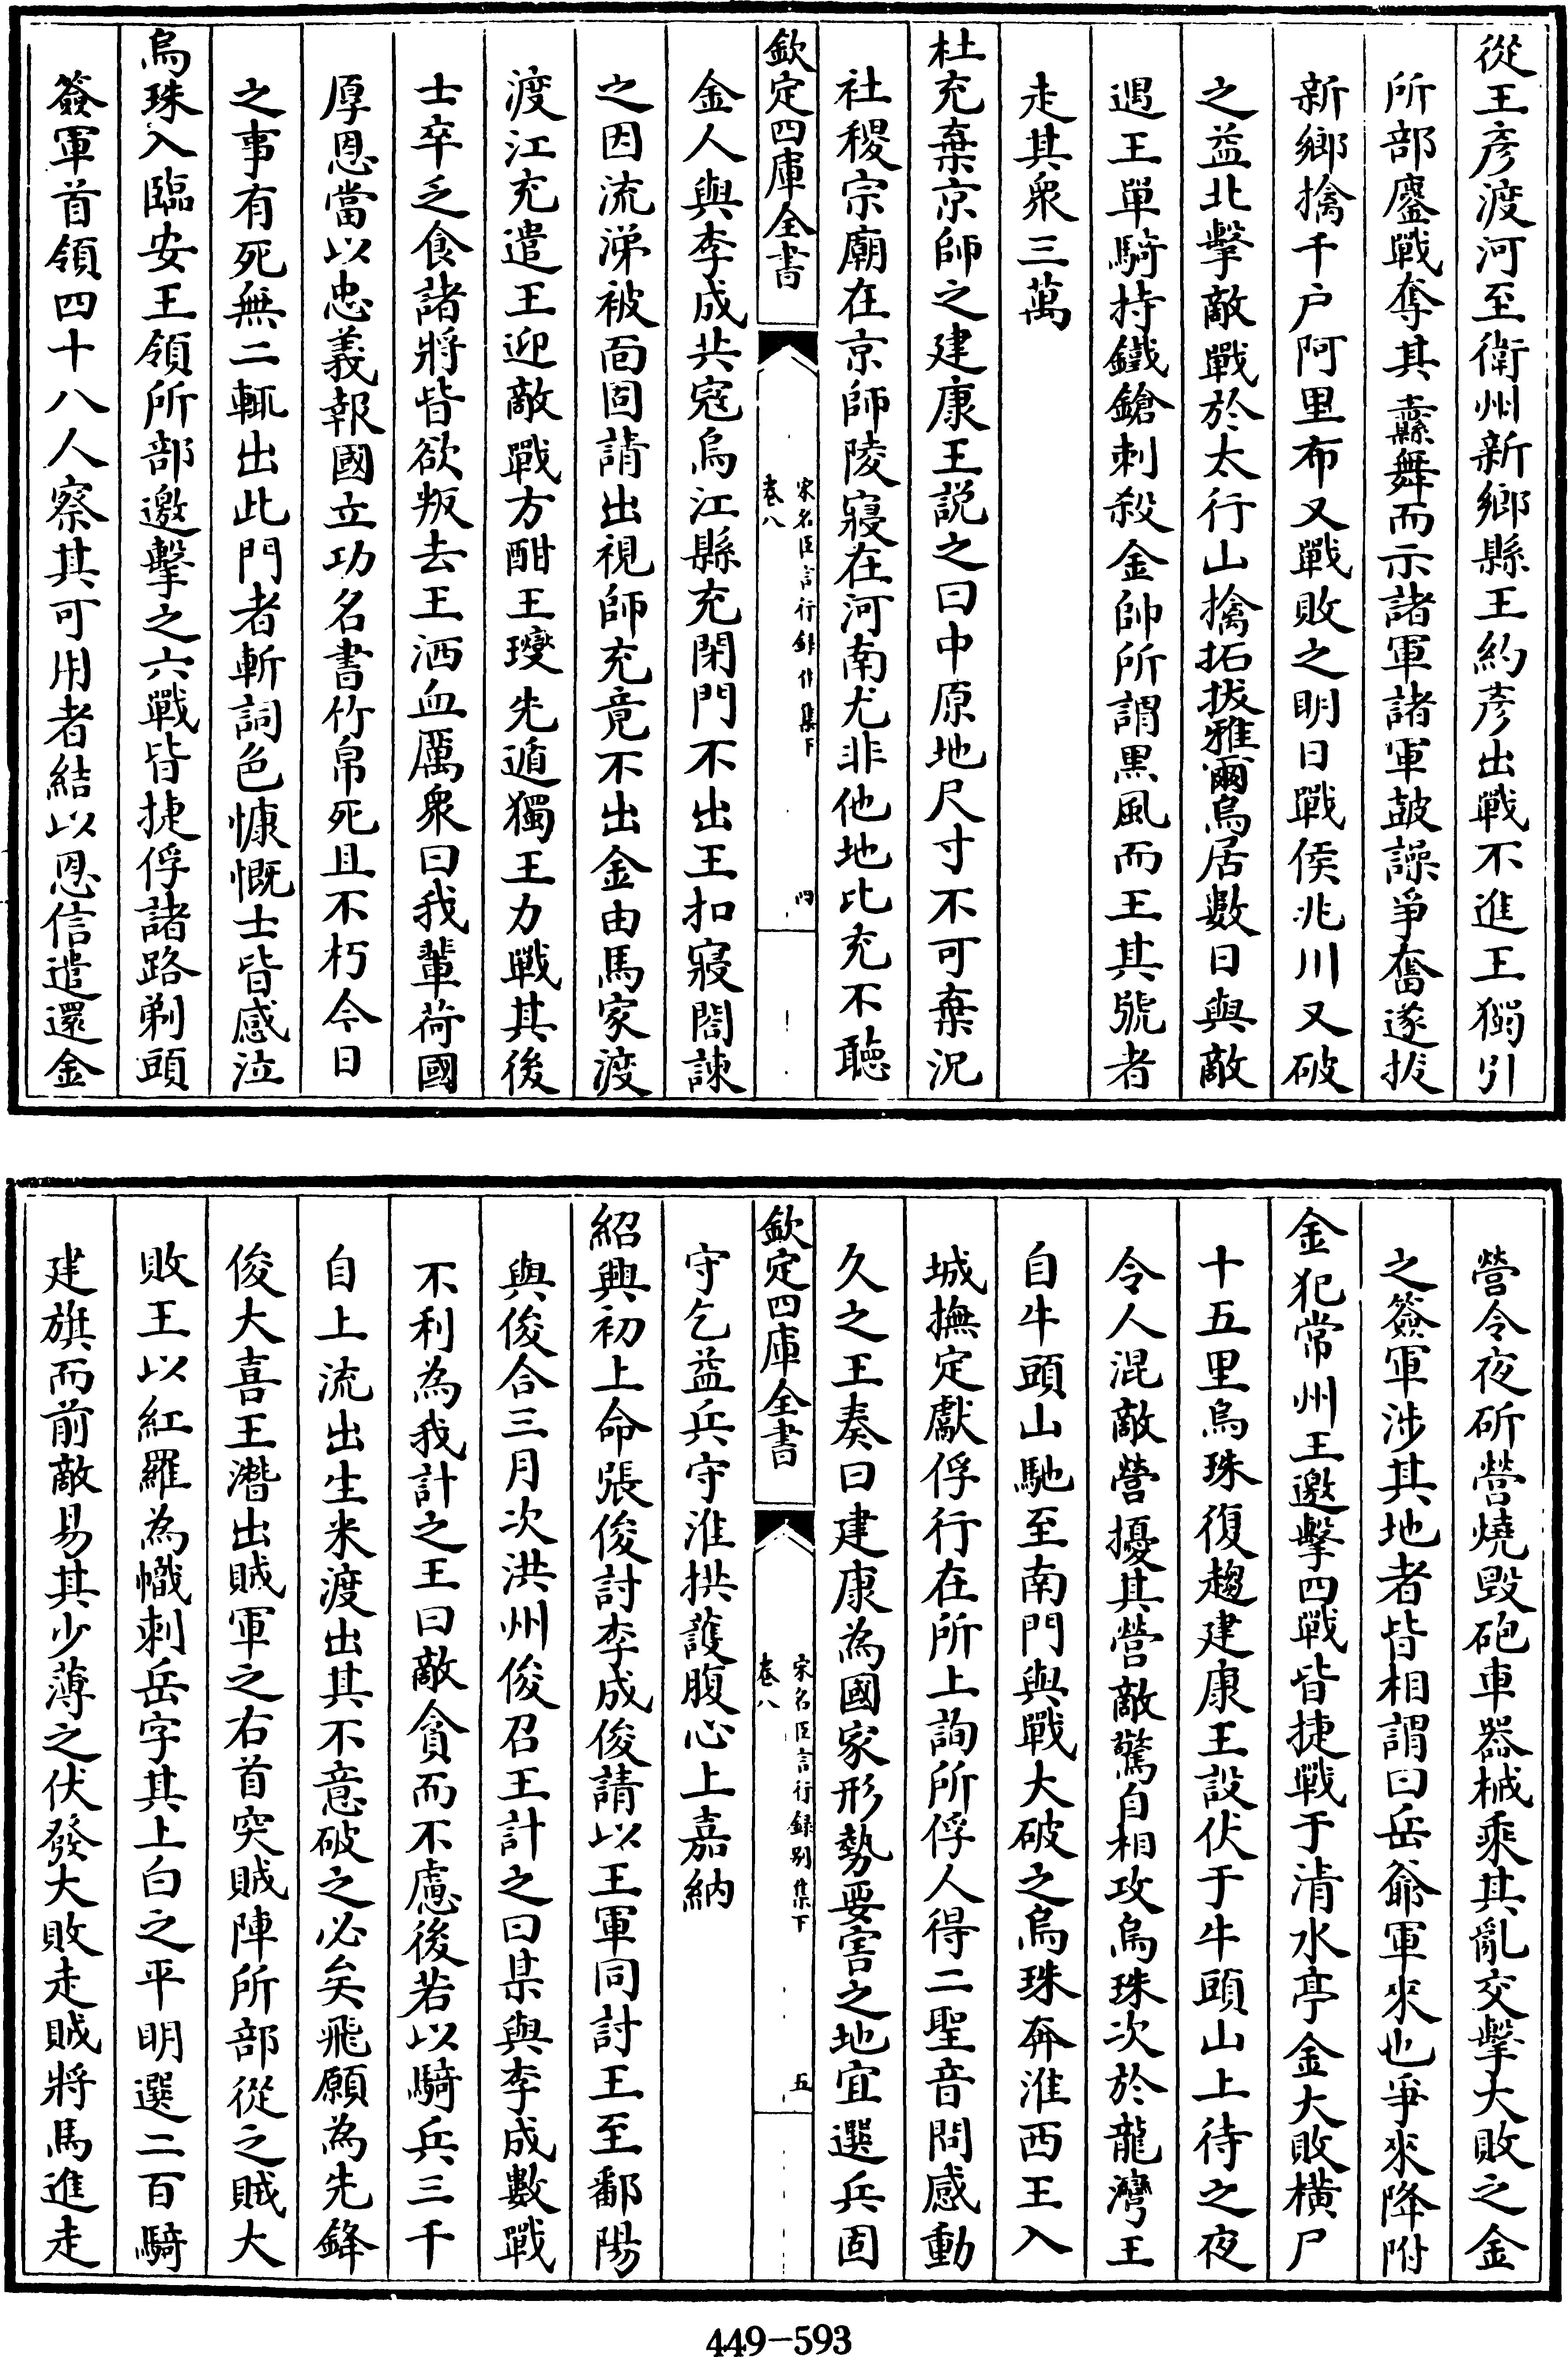 從王彥渡河至衛州新鄉縣王約彥出戰不進王獨引
所部鏖戰奪其纛舞而示諸軍諸軍鼓譟爭奮遂拔
新鄉擒千户阿里布又戰敗之明日戰侯兆川又破
之益北擊敵戰於太行山擒拓拔雅爾烏居數日與敵
遇王單騎持鐵鎗刺殺金帥所謂黑風而王其號者
走其衆三萬
杜充棄京師之建康王説之曰中原地尺寸不可棄況
社稷宗廟在京師陵寢在河南尤非他地比充不聽
欽定四庫全書
宋名臣言行錄別集下
卷八
四
金人與李成共寇烏江縣充閉門不出王扣寢閤諫
之因流涕被面固請出視師充竟不出金由馬家渡
渡江充遣王迎敵戰方酣王𤫉先遁獨王力戰其後
士卒乏食諸將皆欲叛去王洒血厲衆曰我輩荷國
厚恩當以忠義報國立功名書竹帛死且不朽今日
之事有死無二輒出此門者斬詞色慷慨士皆感泣
烏珠入臨安王領所部邀擊之六戰皆捷俘諸路剃頭
簽軍首領四十八人察其可用者結以恩信遣還金
營令夜斫營燒毀砲車器械乘其亂交擊大敗之金
之簽軍涉其地者皆相謂曰岳爺軍來也爭來降附
金犯常州王邀擊四戰皆捷戰于清水亭金大敗橫尸
十五里烏珠復趨建康王設伏于牛頭山上待之夜
令人混敵營擾其營敵驚自相攻烏珠次於龍灣王
自牛頭山馳至南門與戰大破之烏珠奔淮西王入
城撫定獻俘行在所上詢所俘人得二聖音問感動
久之王奏曰建康為國家形勢要害之地宜選兵固
欽定四庫全書
宋名臣言行録别集下
卷八
五
守乞益兵守淮拱護腹心上嘉納
紹興初上命張俊討李成俊請以王軍同討王至鄱陽
與俊合三月次洪州俊召王計之曰某與李成數戰
不利為我計之王曰敵貪而不慮後若以騎兵三千
自上流出生米渡出其不意破之必矣飛願為先鋒
俊大喜王潛出賊軍之右首突賊陣所部從之賊大
敗王以紅羅為幟刺岳字其上白之平明選二百騎
建旗而前敵易其少薄之伏發大敗走賊將馬進走
449-593